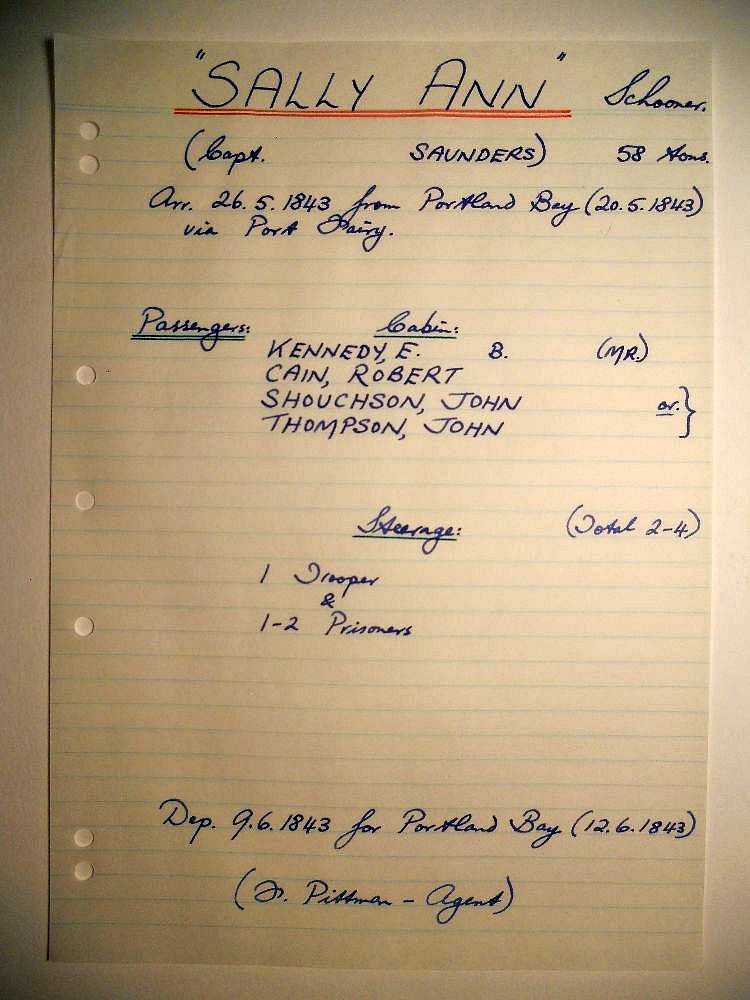 "SALLY ANN" Schooner.
(Capt. SAUNDERS) 58 tons.
Arr. 26.5.1843 from Portland Bay (20.5.1843)
via Port Fairy.
Passengers: Cabin:
KENNEDY, E. B. (MR.)
CAIN, ROBERT
SHOUCHSON, JOHN
or. }
THOMPSON, JOHN
Steerage: (Total 2-4)
1 Trooper
&
1-2 Prisoners
Dep. 9.6.1843 for Portland Bay (12.6.1843)
Pittman - Agent)